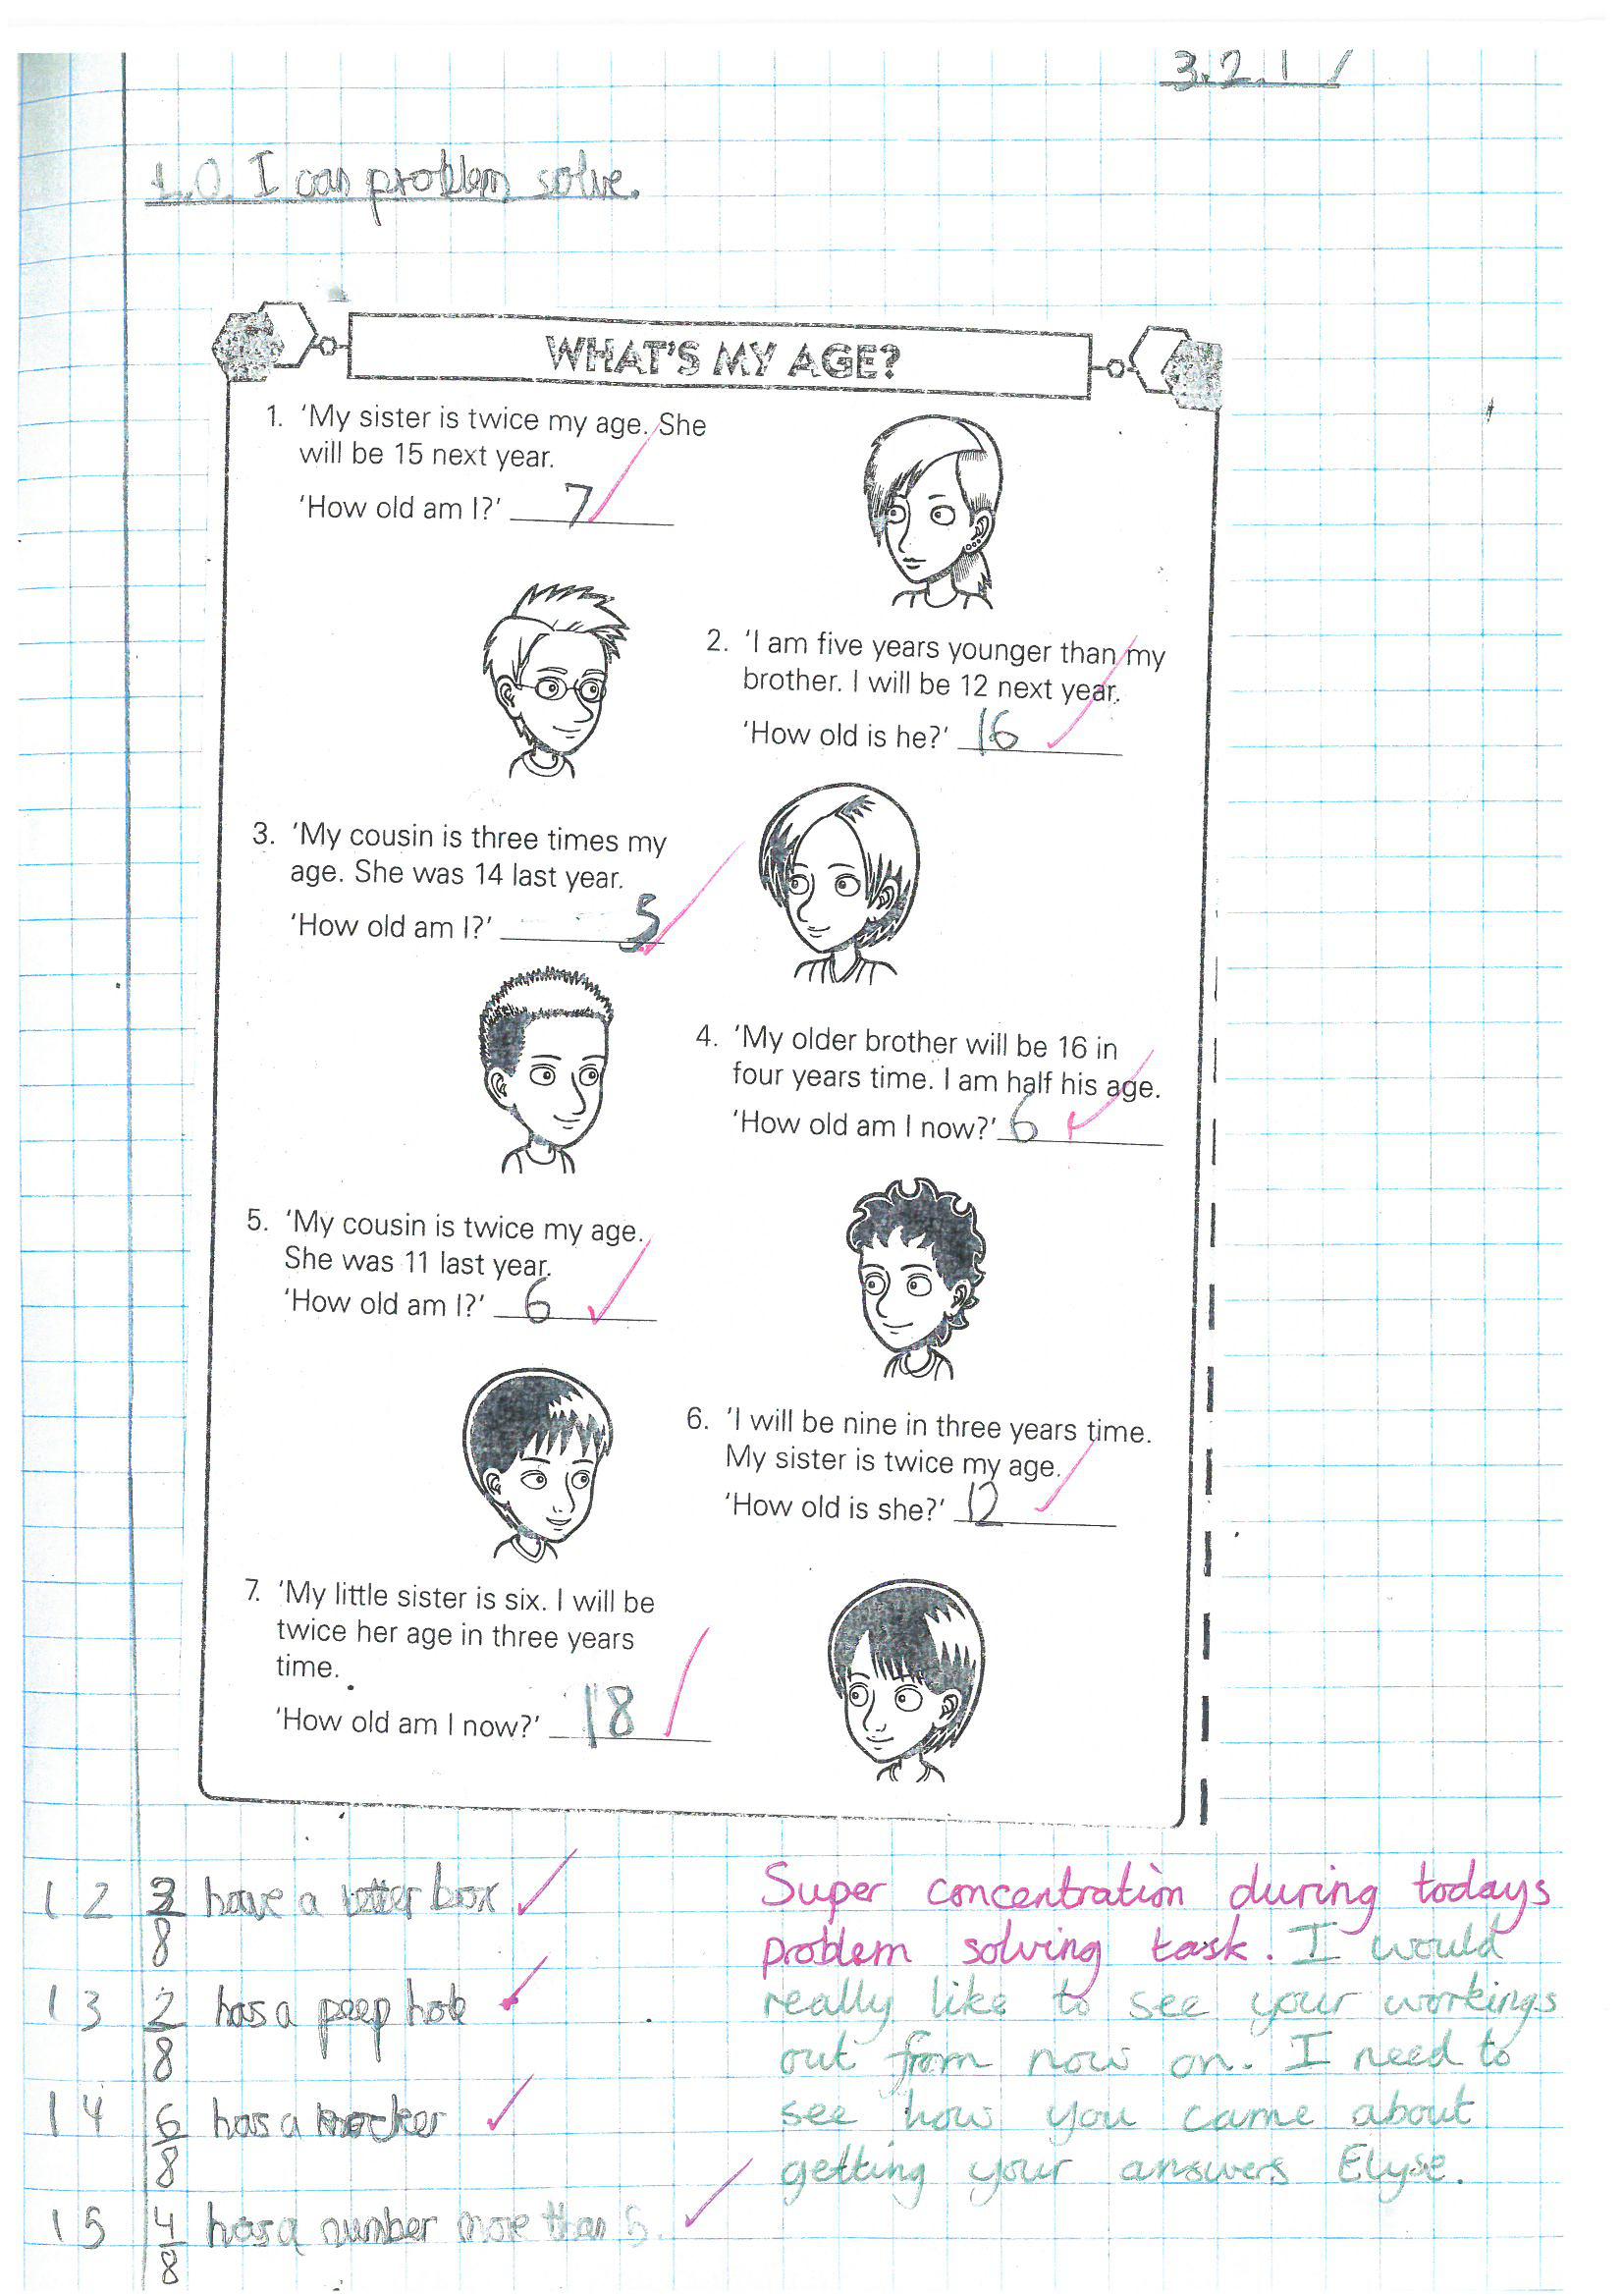 3.2.1
I can problem solve.
WHAT'S MY AGE?
1. 'My sister is twice my age. She
will be 15 next year.
'How old am I?' 7
2. 'I am five years younger than my
brother. I will be 12 next year.
'How old is he?' 16
3. 'My cousin is three times my
age. She was 14 last year.
'How old am I?' 5
4. 'My older brother will be 16 in
four years time. I am half his age.
'How old am I now?' 6
5. 'My cousin is twice my age.
She was 11 last year.
'How old am I?' 6
6. 'I will be nine in three years time.
My sister is twice my age.
'How old is she?' 12
7. 'My little sister is six. I will be
twice her age in three years
time.
'How old am I now?' 18
12 3/8 have a letter box
13 2/8 has a peep hole
14 6/8 has a
15 4/8 has a number more than 5.
Super concentration during todays
problem solving task. I would
really like to see your workings
out from now on. I need to
see how you came about
getting your answers Elyse.